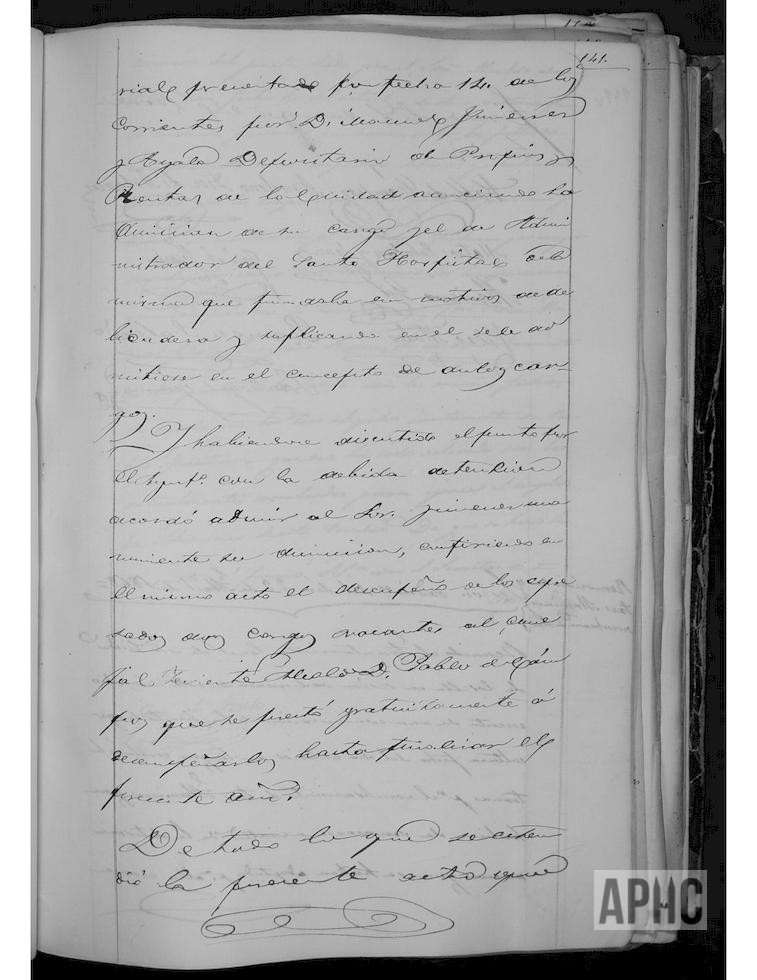 141.
rial presentado por fecha 14. de los
corrientes por D. Manuel Jimenez
y Ayala Depositario de Propios y
Rentas de la Ciudad anunciando la
dimicion de su cargo y el de Admi
nistrador del Santo Hospital de la
misma que fundaba en motivos de de
licadesa y suplicando en el se le ad
mitiese en el concepto de ambos car-
gos.
Y habiendose discutido el punto por
el Aynt.º con la debida detencion
acordó admir al Sor. Jimenez una
nimente su dimicion, confiriendo en
el mismo acto el desempeño de los espre
sados dos cargos vacantes al Conce
jal Teniente Alcalde D. Pablo de Cam
pos que se prestó gratuitamente á
desempeñarlos hasta finalizar el
presente año.
De todo lo que se esten
dió la presente acta que
APHC